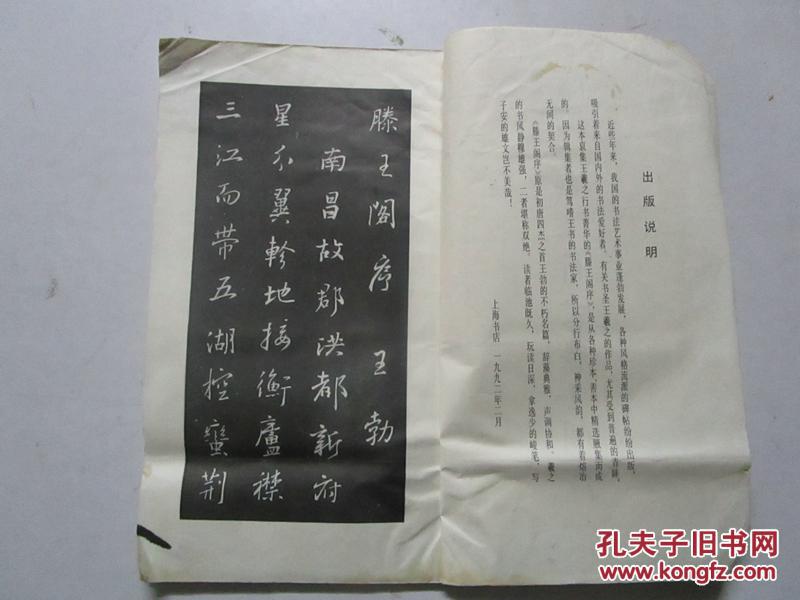 出版说明
近些年来，我国的书法艺术事业蓬勃发展，各种风格流派的碑帖纷纷出版，
吸引着来自国内外的书法爱好者。有关书圣王羲之的作品，尤其受到普遍的青睐。
这本裒集王羲之行书菁华的《滕王阁序》，是从各种珍本、善本中精选腋集而成
的。因为辑集者也是笃嗜王书的书法家，所以分行布白，神采风韵，都有着熔冶
无间的契合。
《滕王阁序》原是初唐四杰之首王勃的不朽名篇，辞藻典雅，声调协和。羲之
的书风静穆雄强，二者堪称双绝。读者临池既久，玩读日深，拿逸少的峻笔，写
子安的雄文岂不美哉！
上海书店 一九九二年二月
滕王阁序 王勃
南昌故郡洪都新府
星分翼轸地接衡庐襟
三江而带五湖控蛮荆
孔夫子旧书网
www.kongfz.com